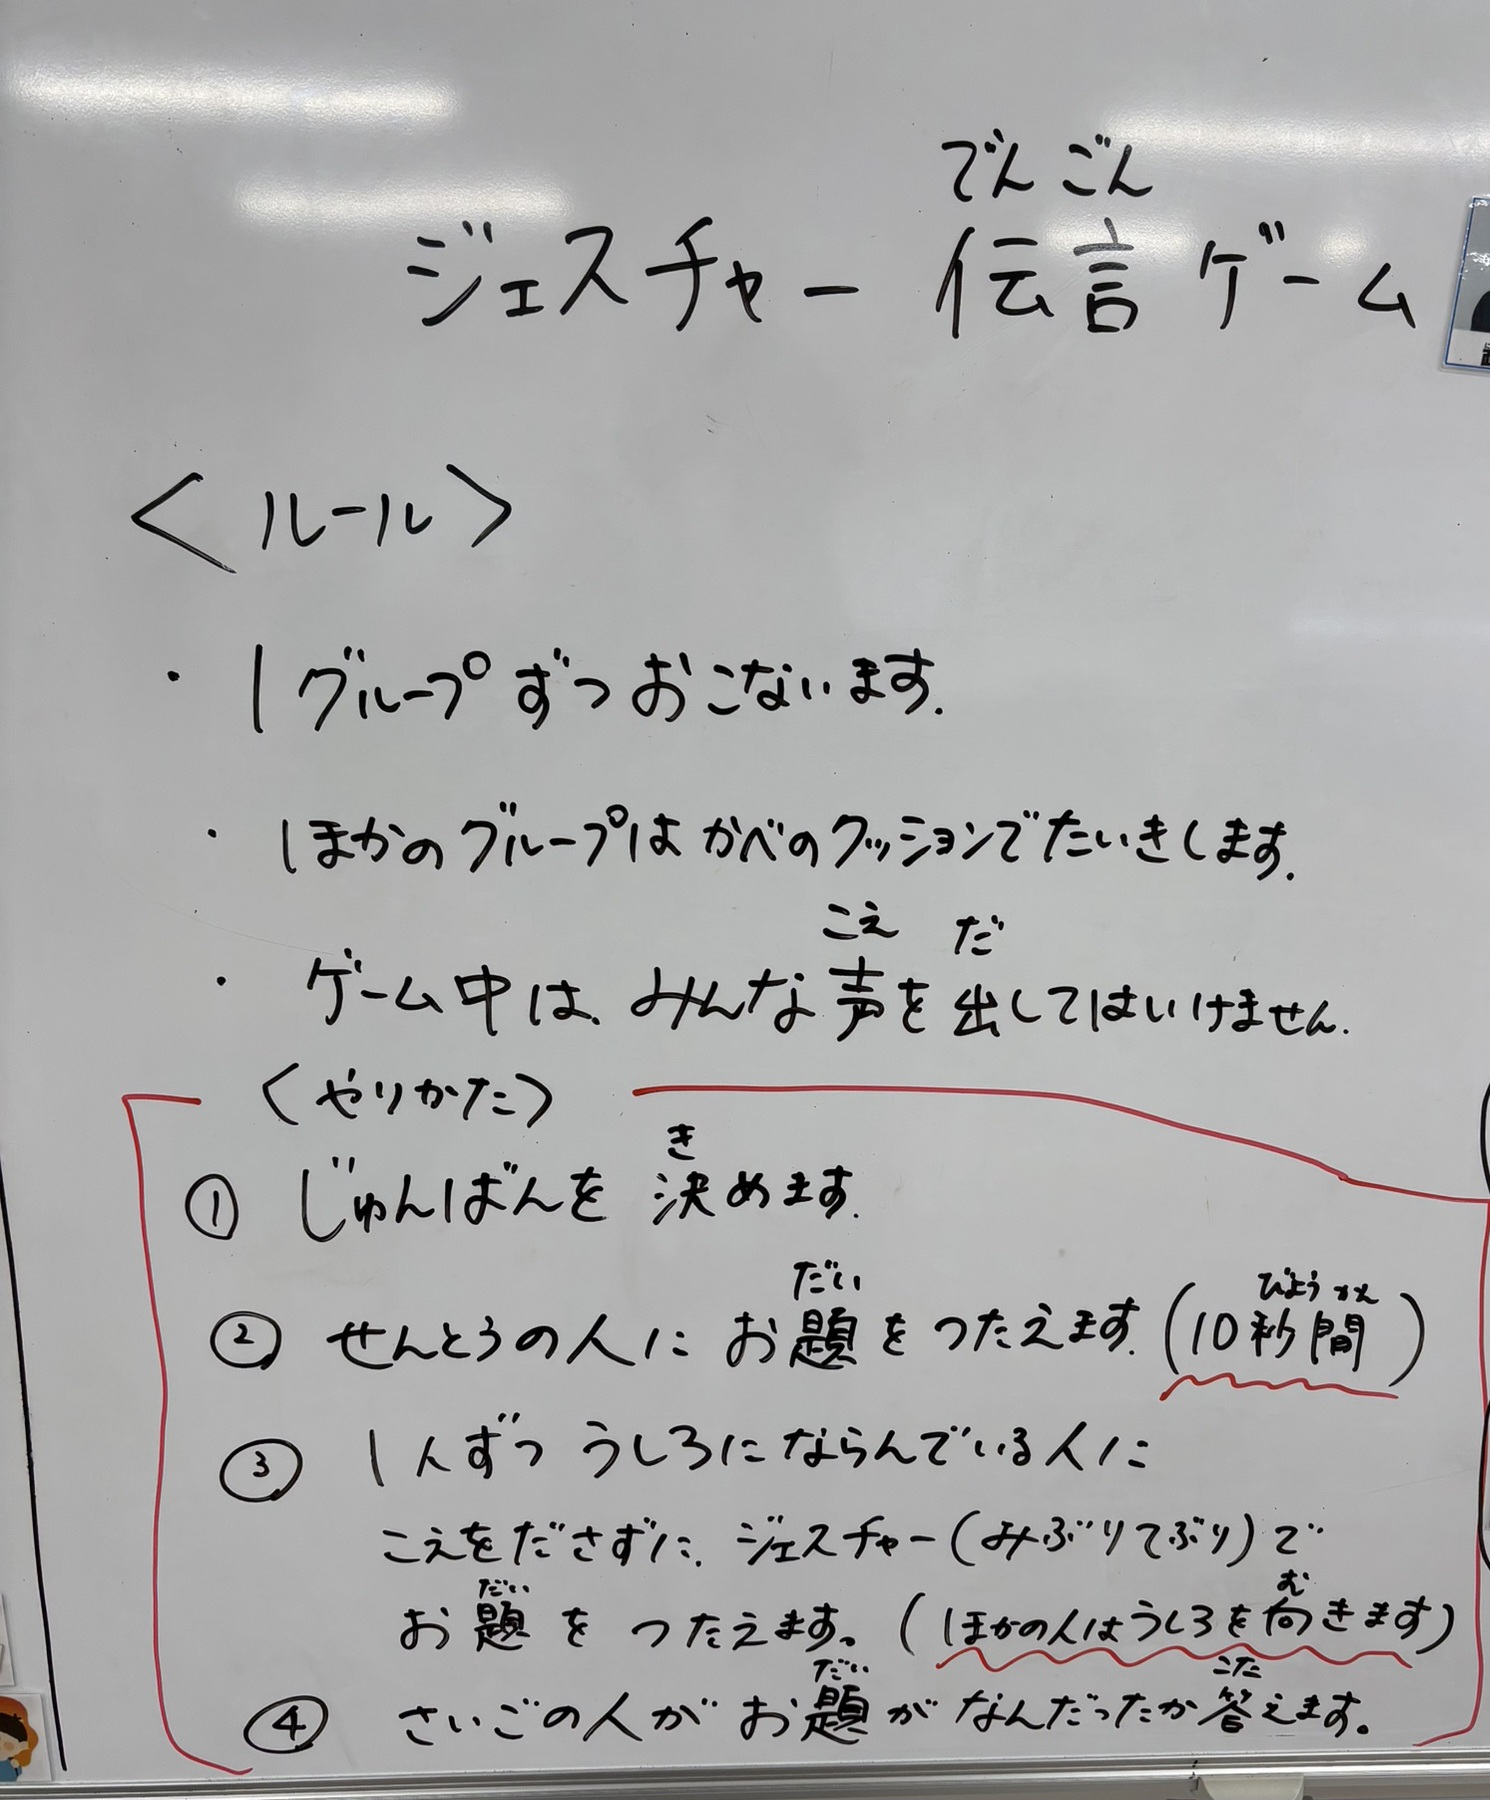 でんごん
ジェスチャー 伝言ゲーム
<ルール>
・1グループずつおこないます.
・ほかのグループは かべのクッションでたいきします.
こえ だ
・ゲーム中は、みんな声を出してはいけません.
<やりかた>
き
① じゅんばんを決めます.
だい びょうかん
② せんとうの人に お題をつたえます.(10秒間)
③ 1人ずつ うしろにならんでいる人に
こえをださずに、ジェスチャー(みぶりてぶり)で
だい む
お題を つたえます。(ほかの人はうしろを向きます)
だい こた
④ さいごの人が お題が なんだったか答えます。